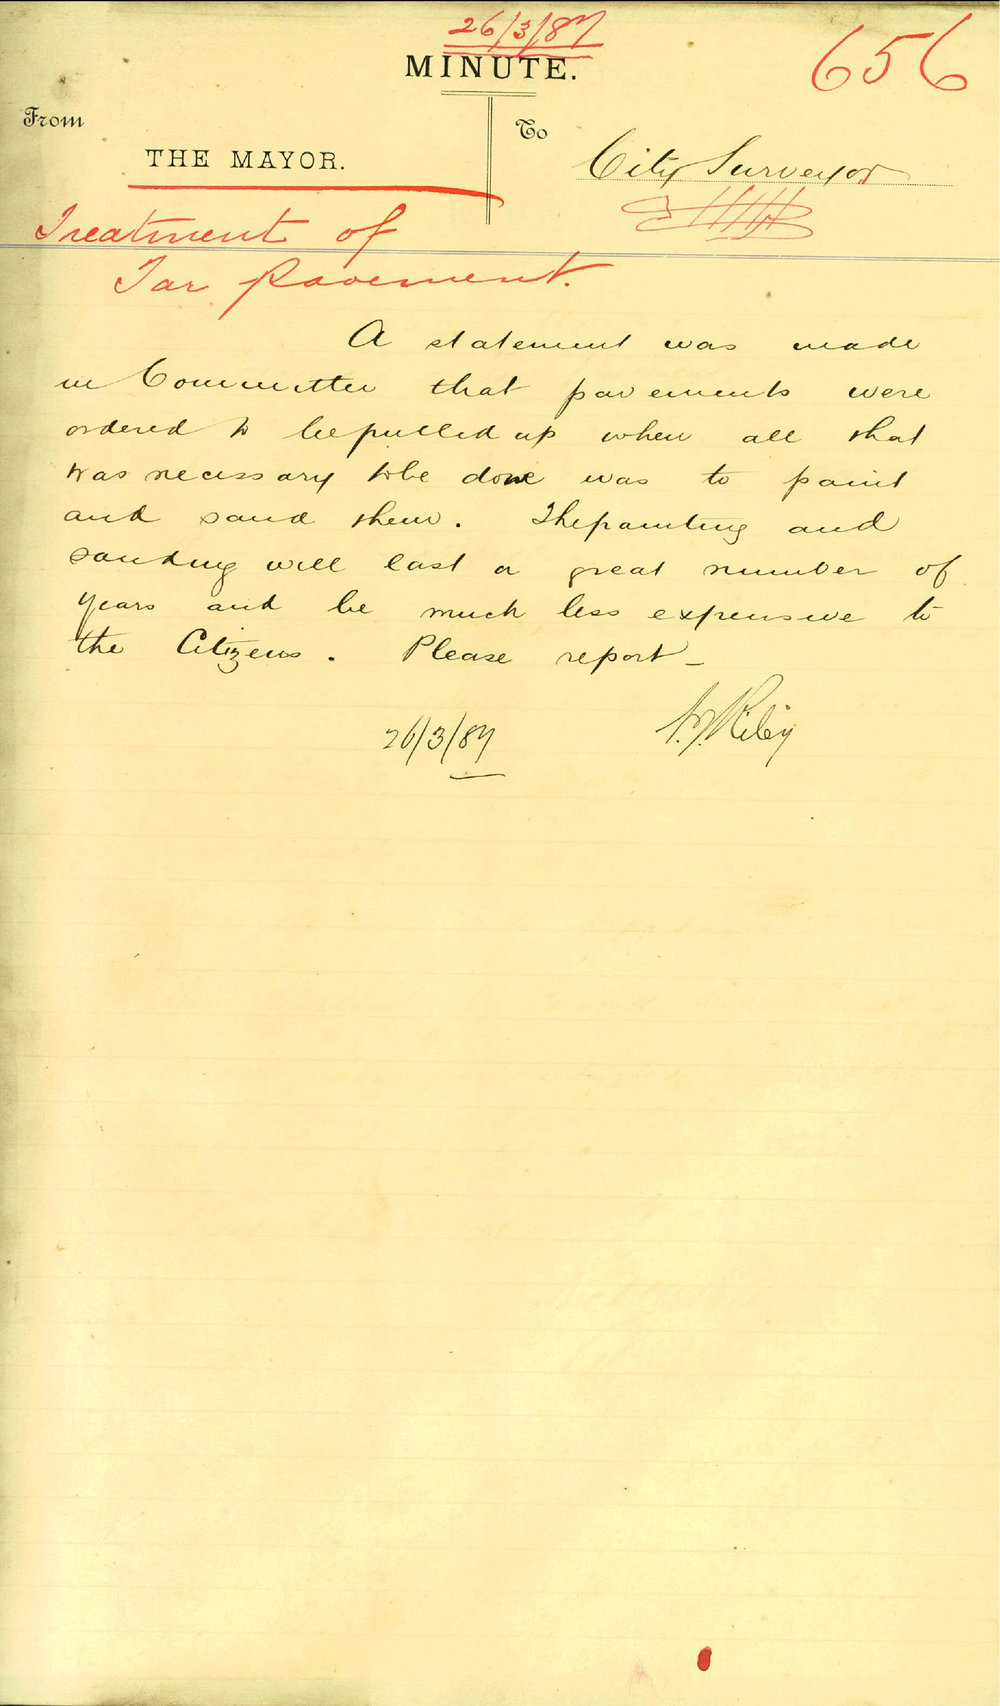 26/3/87
656
MINUTE.
From
To
THE MAYOR.
City Surveyor
Treatment of
Tar Pavement.
A statement was made
in Committee that pavements were
ordered to be pulled up when all that
was necessary to be done was to paint
and sand them. The painting and
sanding will last a great number of
years and be much less expensive to
the Citizens. Please report –
26/3/87
A.J. Riley